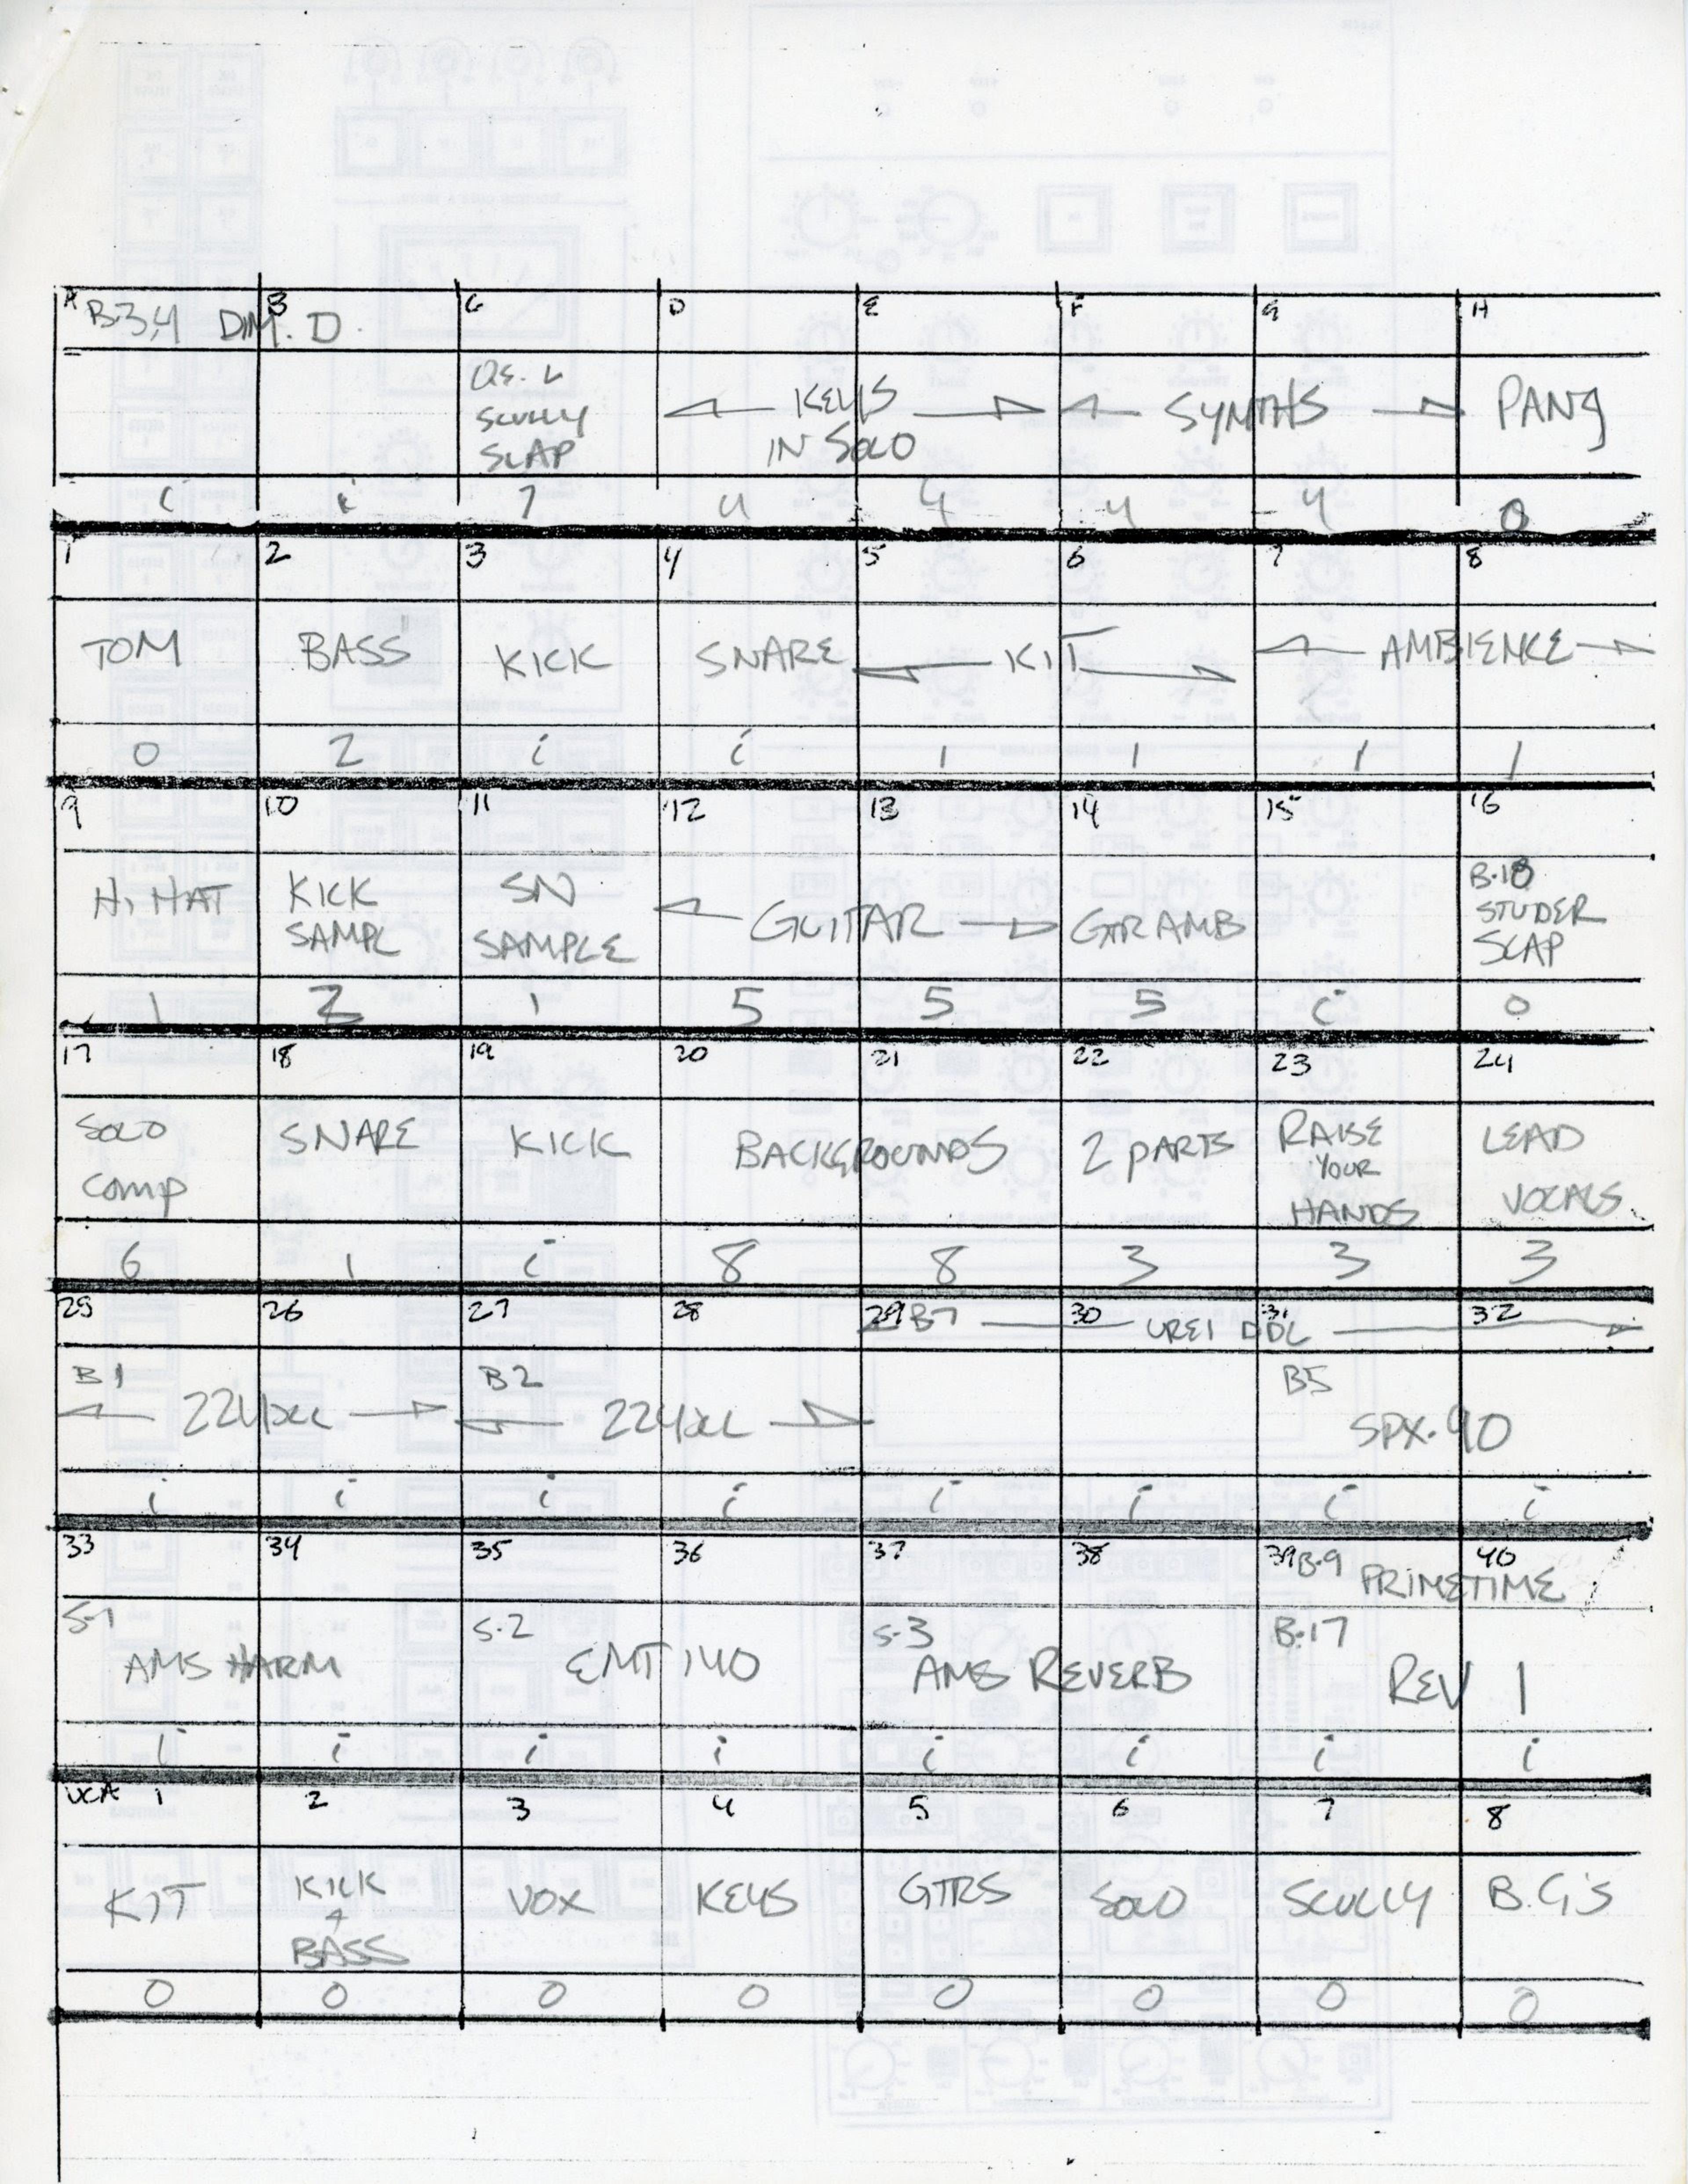 A B C D E F G H
B-3,4 DIM. D
SCULLY SLAP
KEYS IN SOLO
SYNTHS
i i 7 4 4 4 4 0
1 2 3 4 5 6 7 8
TOM BASS KICK SNARE KIT AMBIENCE
0 2 i i 1 1 1 1
9 10 11 12 13 14 15 16
HI HAT KICK SAMPL SN SAMPLE GUITAR GTR AMB B-18 STUDER SLAP
1 2 1 5 5 5 i 0
17 18 19 20 21 22 23 24
SOLO COMP SNARE KICK BACKGROUNDS 2 PARTS RAISE YOUR HANDS LEAD VOCALS
6 1 i 8 8 3 3 3
25 26 27 28 29 30 31 32
B7 UREI DDL
B1 224XL B2 224XL B5 SPX-90
i i i i i i i i
33 34 35 36 37 38 39 40
B-9 PRIMETIME
S-1 AMS HARM S-2 EMT 140 S-3 AMS REVERB B-17 REV 1
i i i i i i i i
VCA 1 2 3 4 5 6 7 8
KIT KICK + BASS VOX KEYS GTRS SOLO SCULLY B.G's
0 0 0 0 0 0 0 0